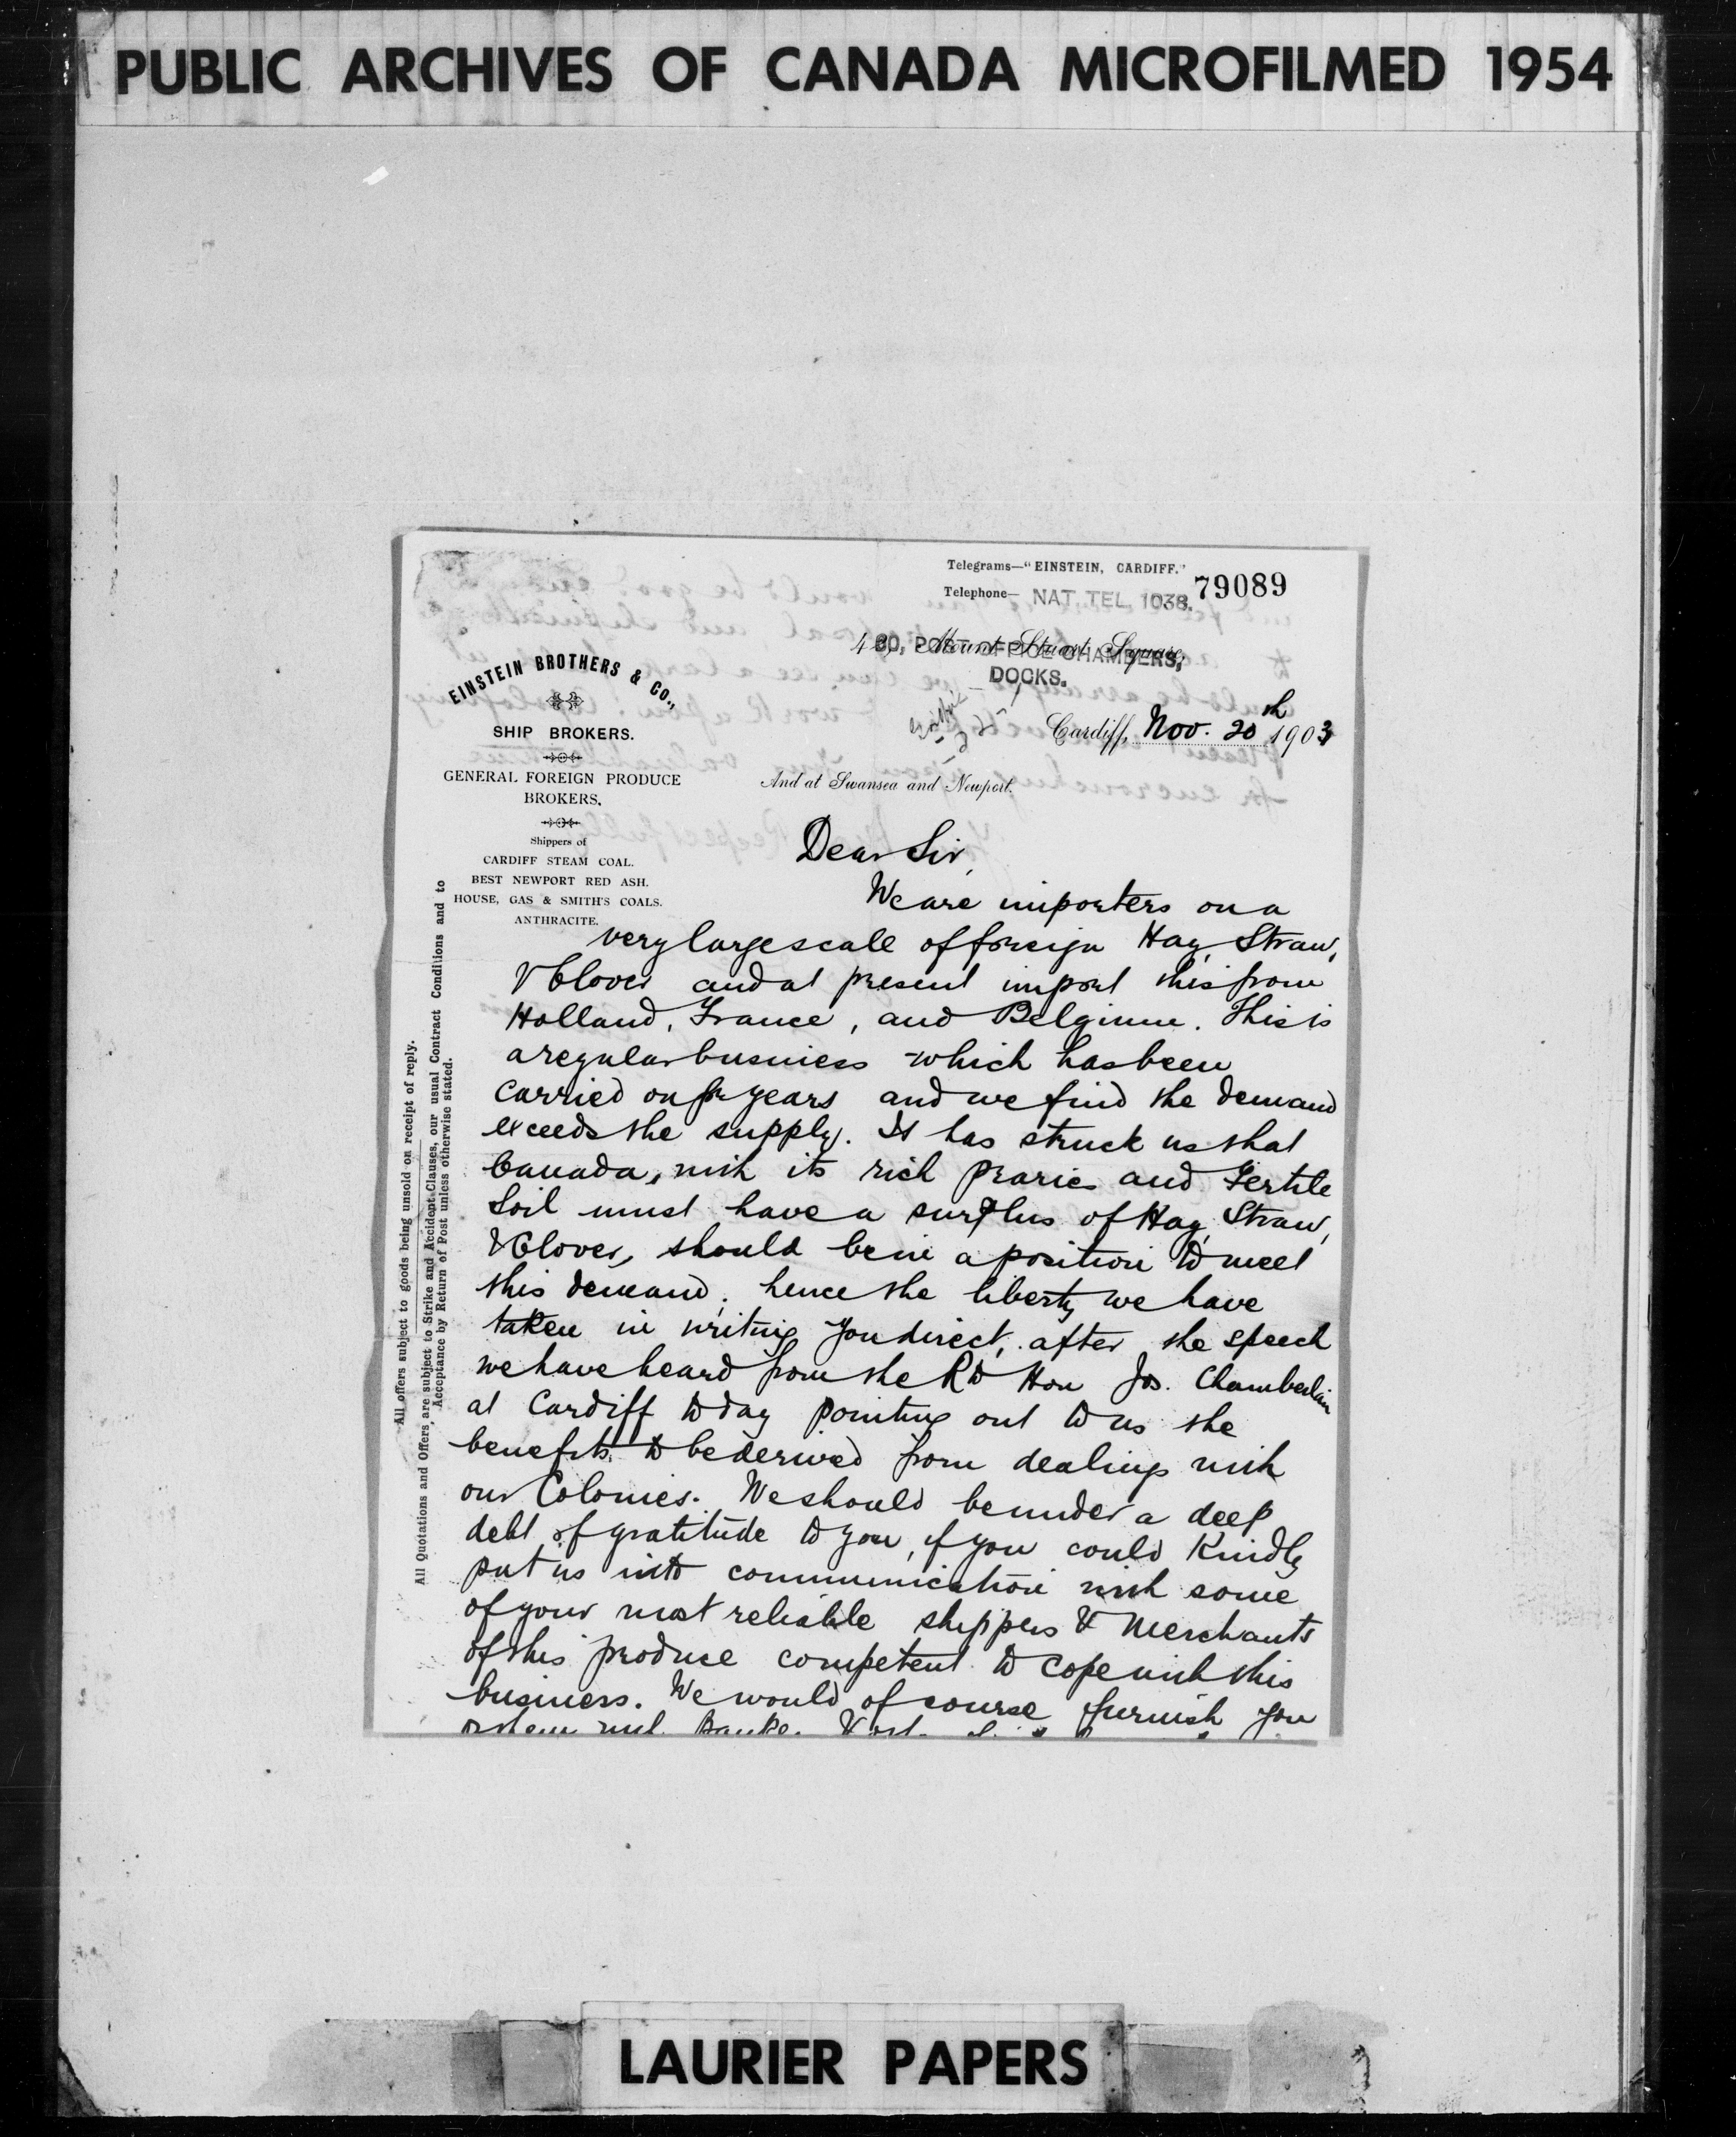 PUBLIC ARCHIVES OF CANADA MICROFILMED 1954
Telegrams—"EINSTEIN, CARDIFF."
79089
Telephone— NAT. TEL. 1038.
Mount Stuart Square,
POST OFFICE CHAMBERS,
DOCKS.
EINSTEIN BROTHERS & CO.,
SHIP BROKERS.
GENERAL FOREIGN PRODUCE
BROKERS.
Shippers of
CARDIFF STEAM COAL.
BEST NEWPORT RED ASH.
HOUSE, GAS & SMITH'S COALS.
ANTHRACITE.
Cardiff, Nov. 20th 1903
And at Swansea and Newport.
All offers subject to goods being unsold on receipt of reply.
All Quotations and Offers, are subject to Strike and Accident Clauses, our usual Contract Conditions and to
Acceptance by Return of Post unless otherwise stated.
Dear Sir,
We are importers on a
very large scale of foreign Hay, Straw,
& Clover and at present import this from
Holland, France, and Belgium. This is
a regular business which has been
carried on for years and we find the demand
exceeds the supply. It has struck us that
Canada, with its rich praries and Fertile
Soil must have a surplus of Hay, Straw,
& Clover, should be in a position to meet
this demand, hence the liberty we have
taken in writing you direct, after the speech
we have heard from the Rt Hon Jos. Chamberlain
at Cardiff today pointing out to us the
benefits to be derived from dealings with
our Colonies. We should be under a deep
debt of gratitude to you, if you could Kindly
put us into communication with some
of your most reliable shippers & Merchants
of this produce competent to cope with this
business. We would of course furnish you
LAURIER PAPERS